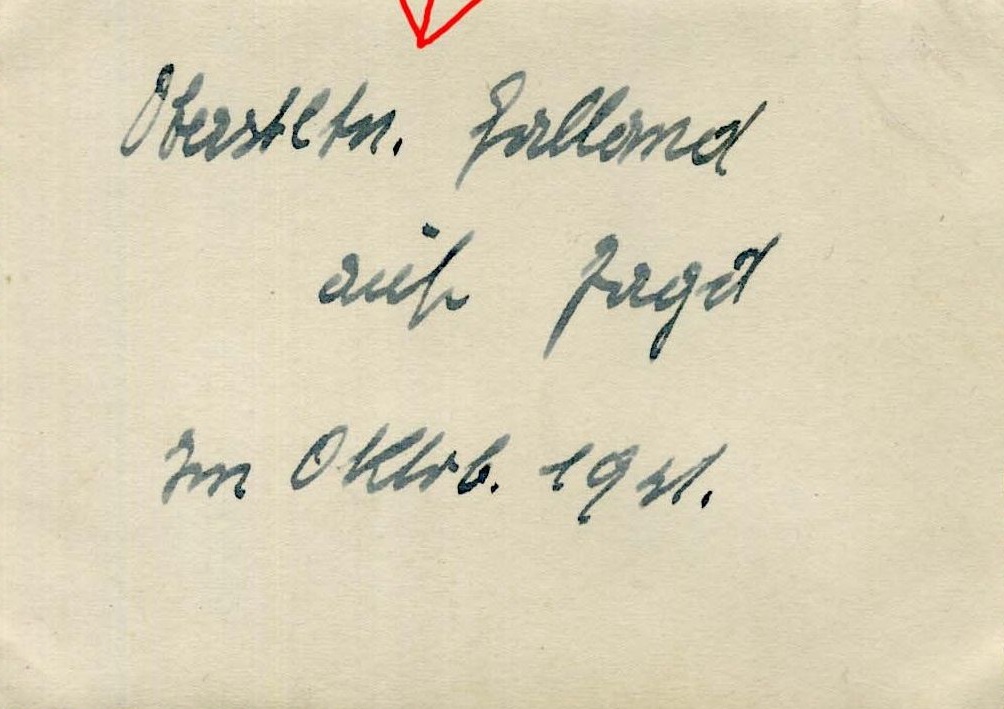 Oberstltn. Galland
auf Jagd
Im Oktob. 1941.